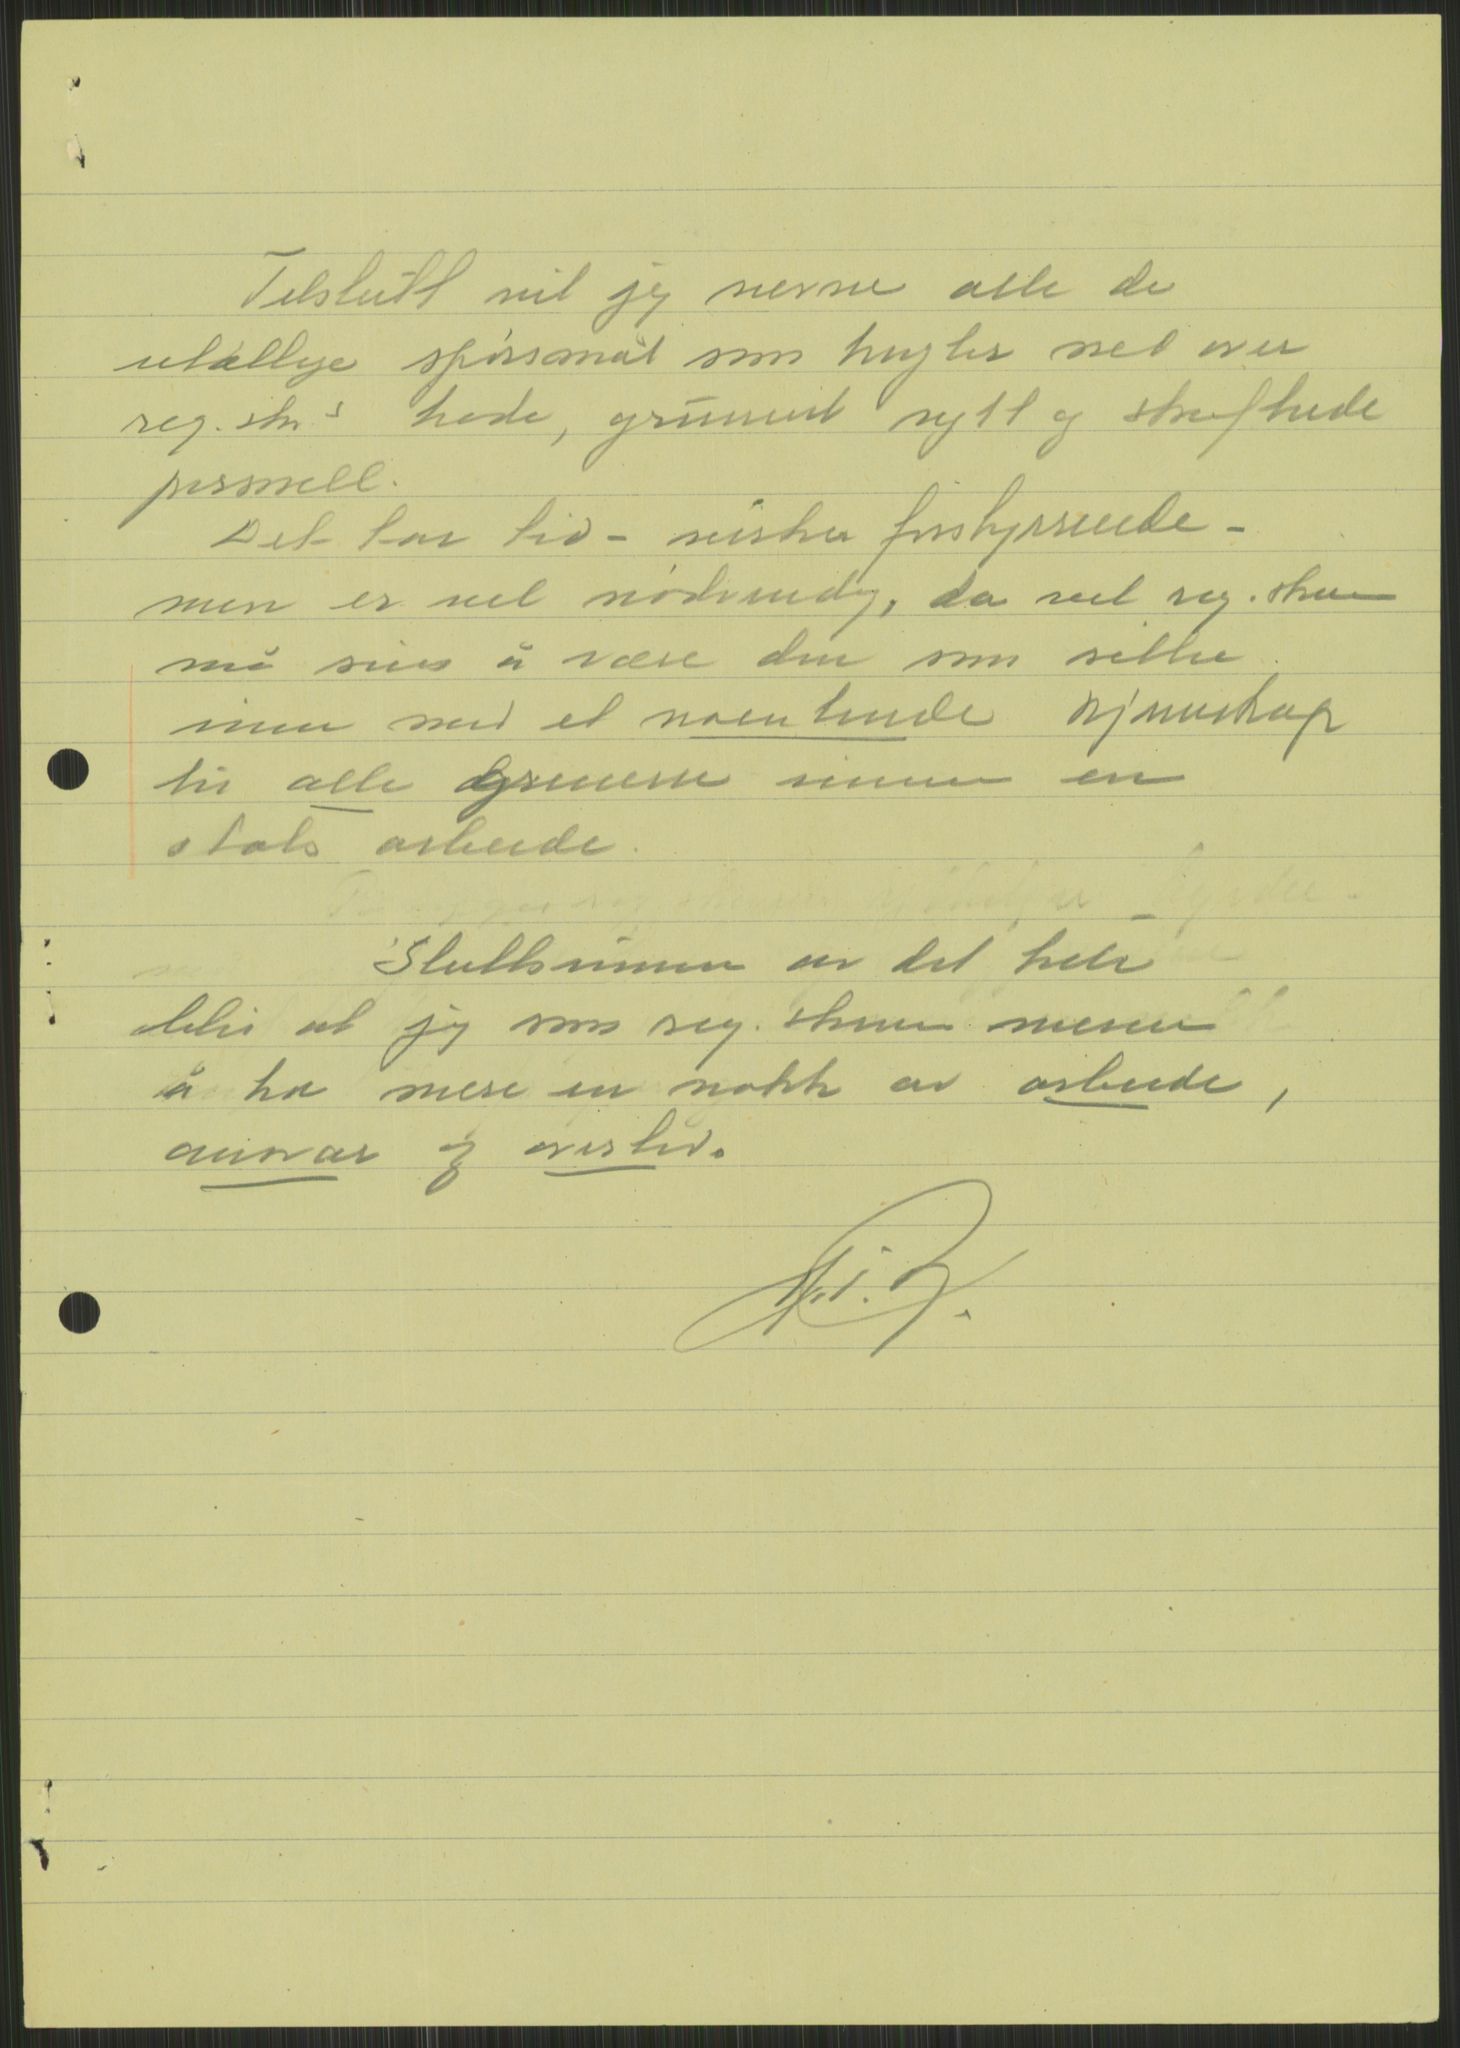 Tilslutt vil jeg nevne alle de
utallige spörsmål som hagler ned over
reg. skr.s hode, grunnet nytt og skiftende
personell.
Det tar tid – virker forstyrrende –
men er vel nödvendig, da vel reg. skriveren
må sies å være den som sitter
inne med et noenlunde kjennskap
til alle grenene innen en
stabs arbeide.
Sluttsummen av det hele
blir at jeg som reg. skriver mener
å ha mere en nokk av arbeide,
ansvar og overtid.